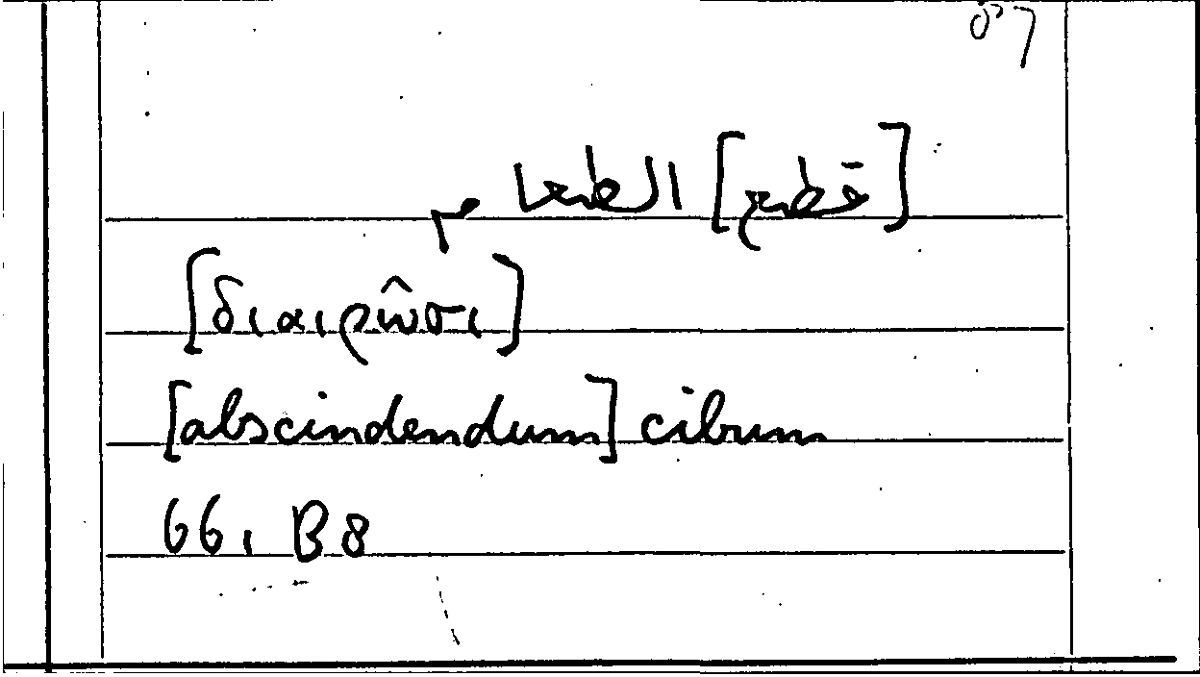 [قطع] الطعام
[διαιρῶσι]
[abscindendum] cibum
66, B8